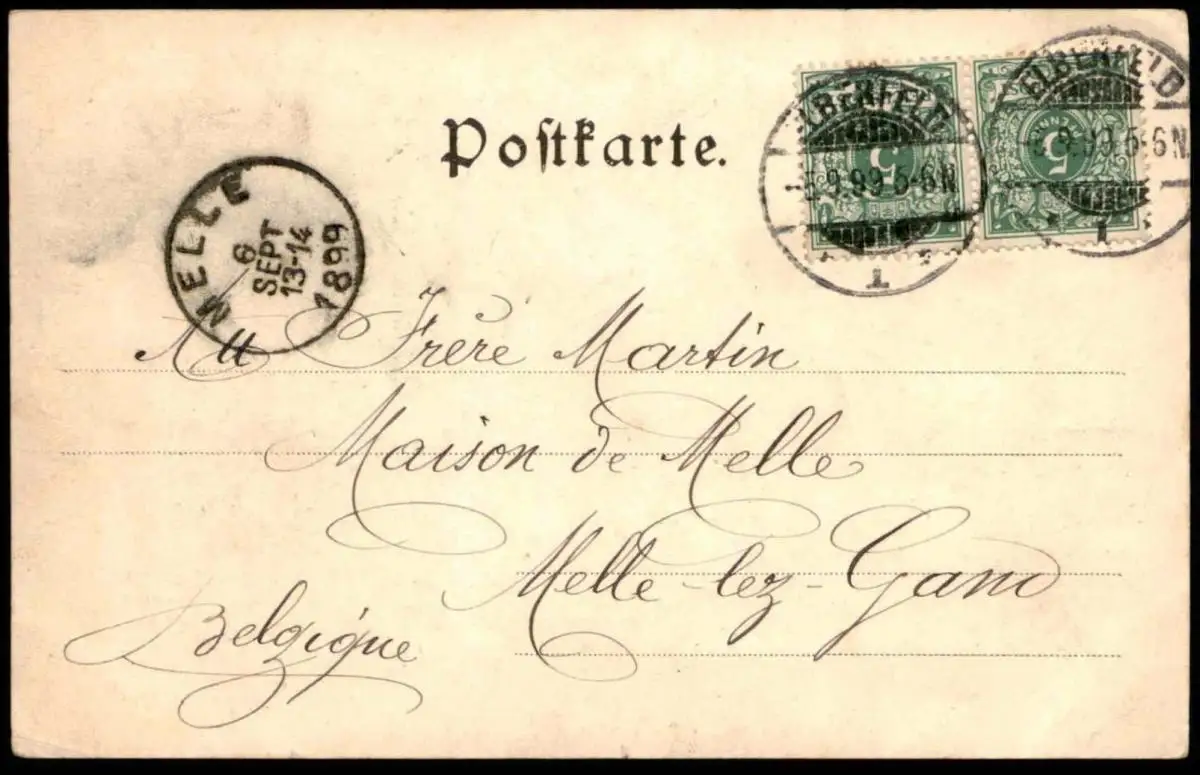 Postkarte.
ELBERFELD
5.9.99 5-6N
1
ELBERFELD
5.9.99 5-6N
1
5
5
MELLE
6
SEPT
13-14
1899
Frère Martin
Maison de Melle
Melle-lez-Gand
Belgique